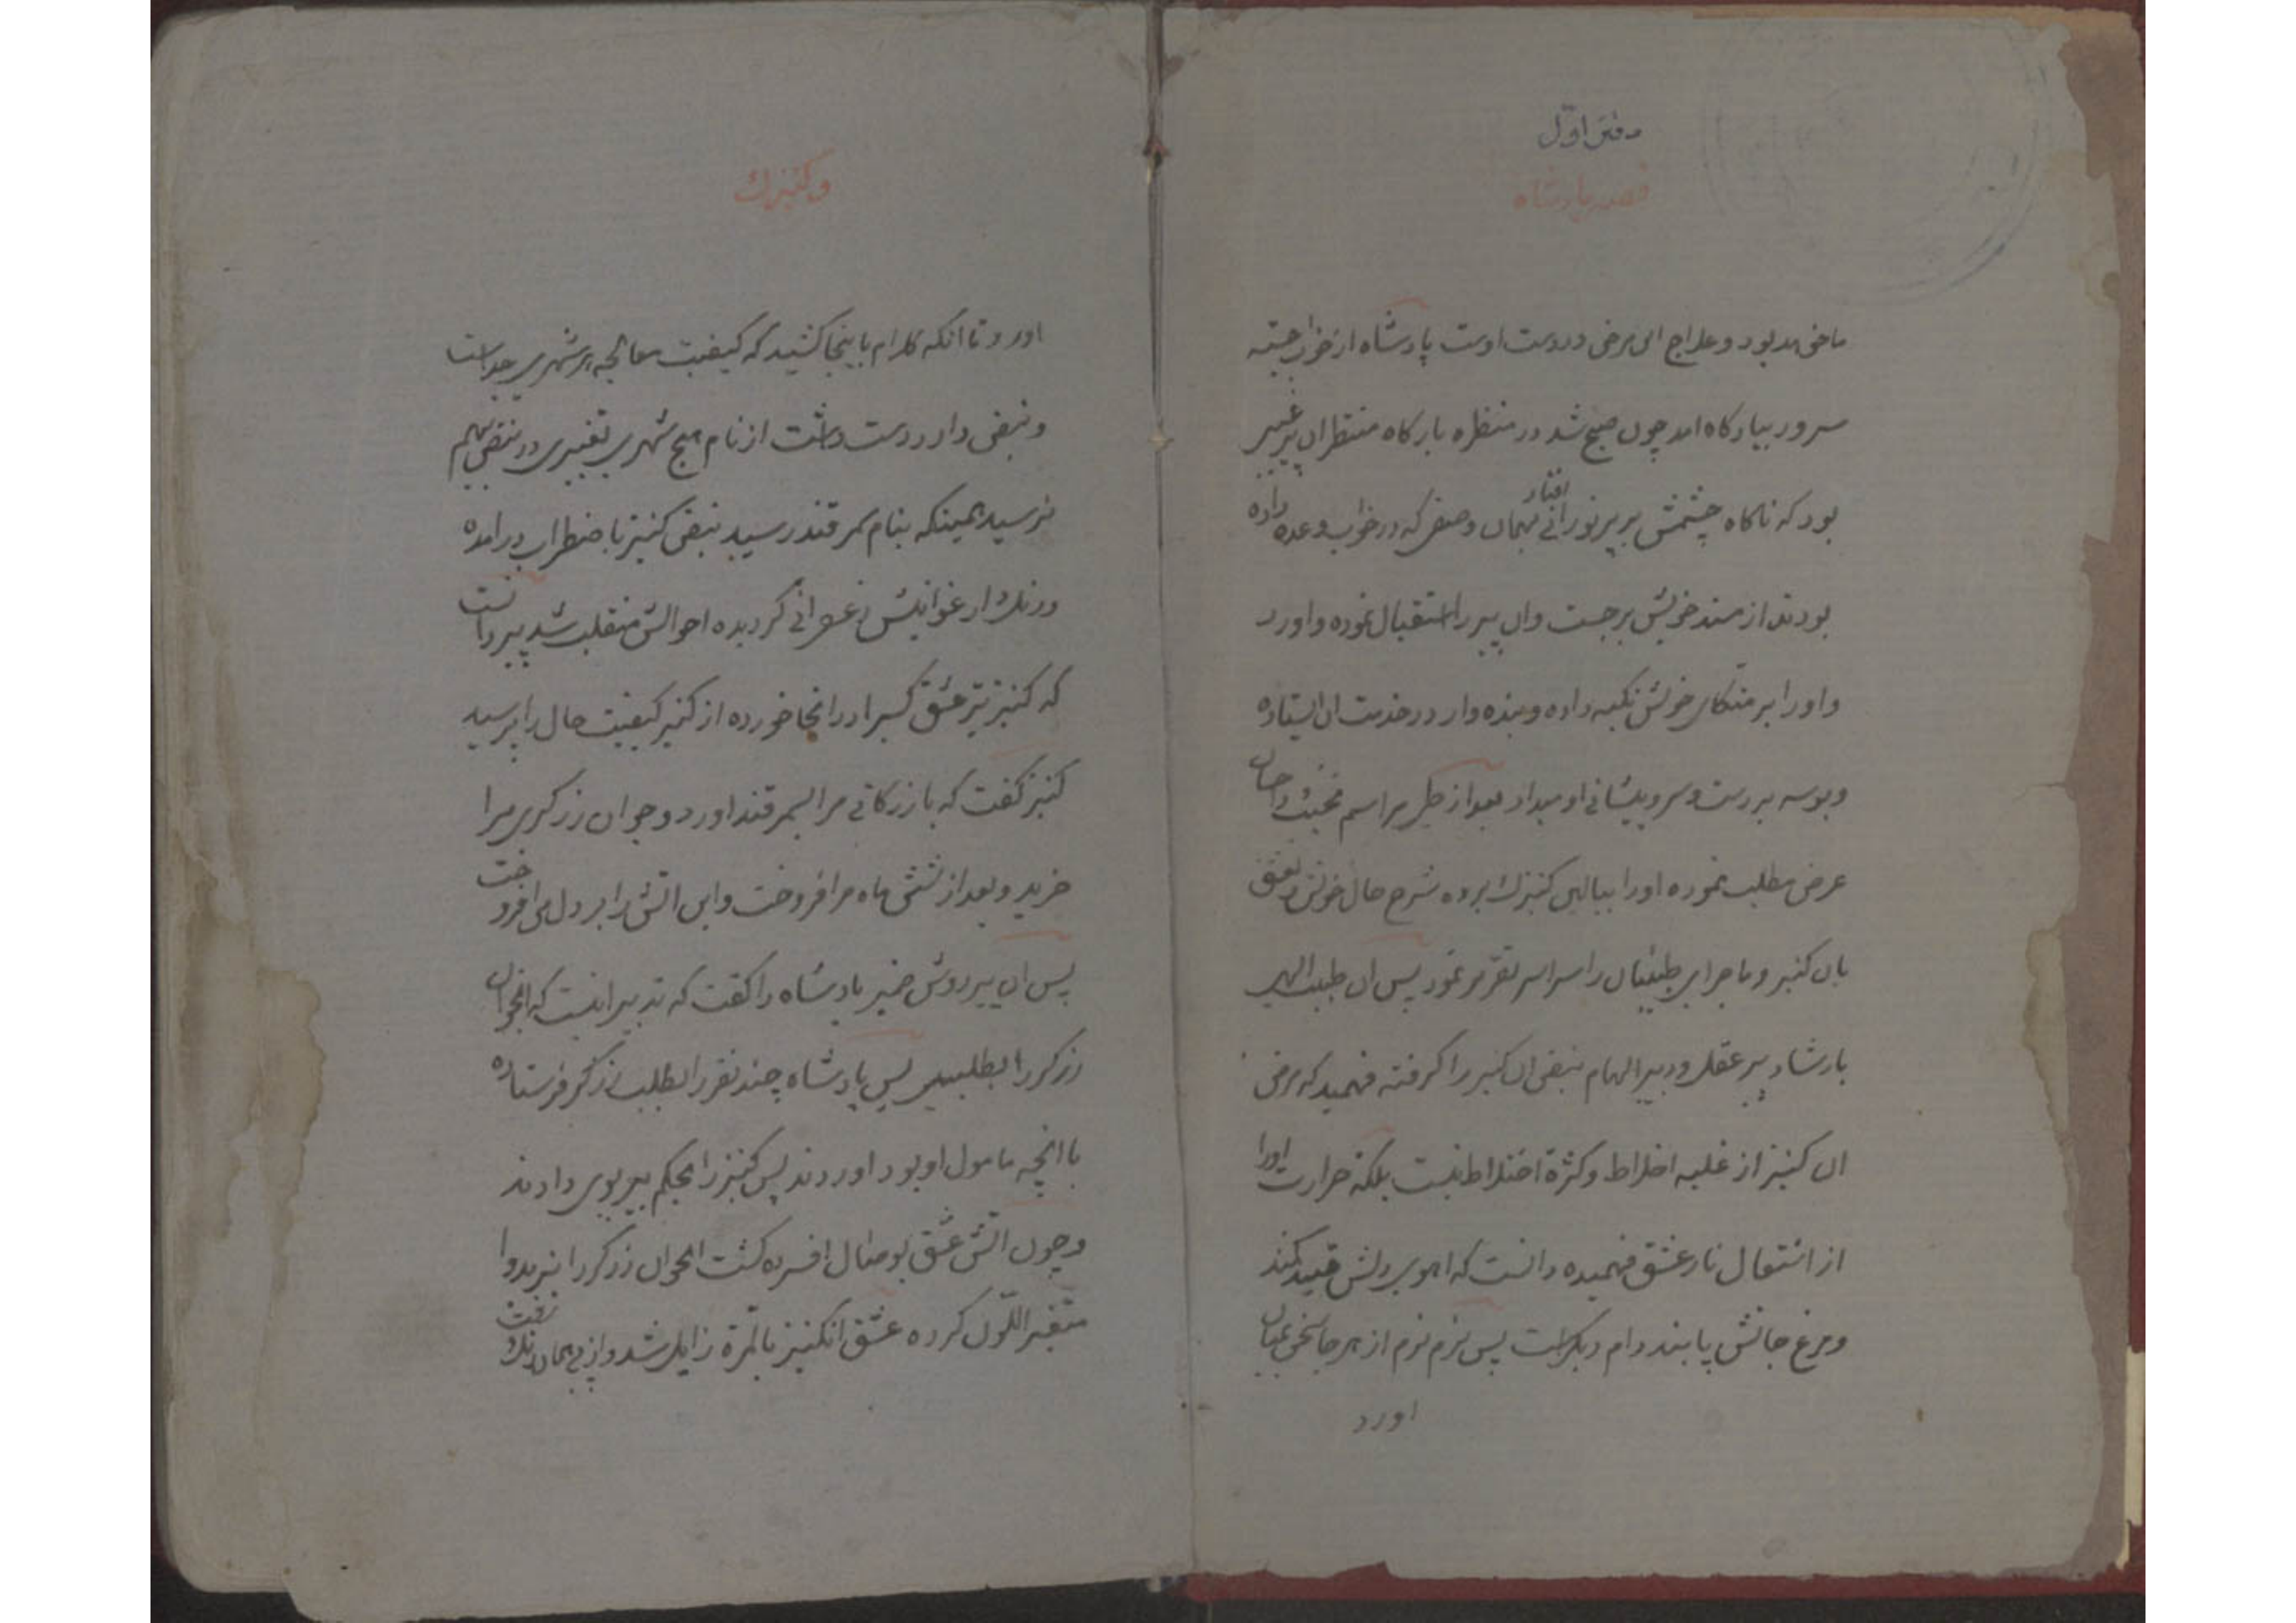 دفتر اول
قصه پادشاه
ما خواهد بود و علاج این مرض در دست اوست پادشاه از خواب جسته
مسرور ببارکاه امد چون صبح شد در منظره بارکاه منتظر ان پیر غیبی
بود که ناکاه چشمش بر پیر نورانی افتاد بهمان وصفی که در خواب وعده داده
بودند از مسند خویش برجست وان پیر را استقبال نموده واورد
واو را بر متکای خویش تکیه داده وبنده وار در خدمت ان ایستاده
وبوسه بر دست وسر وپیشانی او میداد بعد از طی مراسم محبت واحسان
عرض مطلب نموده اورا ببالین کنیزک برده شرح حال خویش وتعشق
بان کنیز وماجرای طبیبان را سراسر تقریر نمود پس ان طبیب الهی
بارشاد پیر عقل ودبیر الهام نبض ان کنیز را کرفته فهمید که مرض
ان کنیز از غلبه اخلاط وکثرة اختلاط نیست بلکه حرارت اورا
از اشتعال نار عشق فهمیده دانست که اهوی دلش قیید کمند
ومرغ جانش پابند دام دیکراست پس نرم نرم از هر جا سخن بمیان
اورد
وکنیزک
اورد تا انکه کلام باینجا کشید که کیفیت معالجه هر شهری جداست
ونبض دار دست داشت از نام هیچ شهری تغییری در نبض بهم
نرسید همینکه بنام سمرقند رسید نبض کنیز باضطراب درامده
ورنک ارغوانیش زعفرانی کردیده احوالش منقلب شد پیر دانست
که کنیز تیر عشق کسیرا در انجا خورده از کنیز کیفیت حال را پرسید
کنیز کفت که بازرکانی مرا بسمرقند اورد وجوان زرکری مرا
خرید وبعد از شش ماه مرا فروخت واین اتش را بر دل من افروخت
پس ان پیر روشن ضمیر پادشاه را کفت که تدبیر انست که انجوان
زرکر را بطلبیم پس پادشاه چند نفر را بطلب زرکر فرستاده
با انچه مامول او بود اوردند پس کنیز را بحکم پیر بوی دادند
وچون اتش عشق بوصال افسرده کشت انجوان زرکر را بتدبیر دوا
متغیر اللون کرده عشق انکنیز بالمرة زایل شد واز پی همان رنک رفت